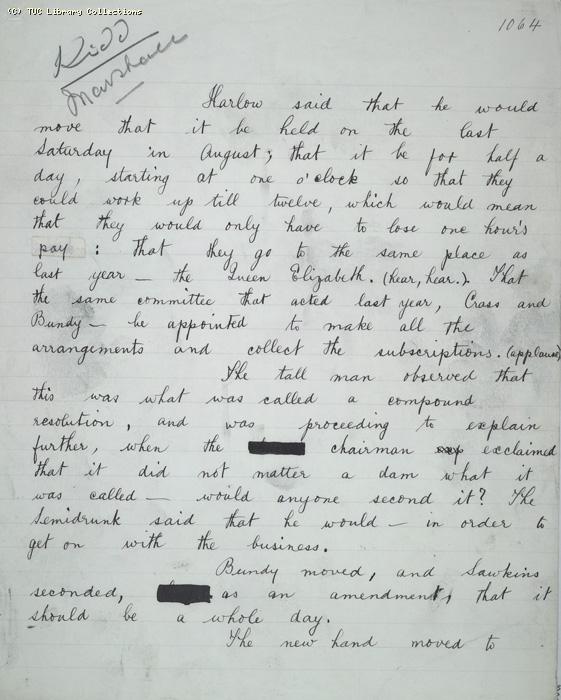 (C) TUC Library Collections
1064
Kidd
Marshall
Harlow said that he would
move that it be held on the last
Saturday in August; that it be for half a
day, starting at one o'clock so that they
could work up till twelve, which would mean
that they would only have to lose one hour's
pay : that they go to the same place as
last year — the Queen Elizabeth. (hear, hear.) That
the same committee that acted last year, Crass and
Bundy — be appointed to make all the
arrangements and collect the subscriptions. (applause)
The tall man observed that
this was what was called a compound
resolution, and was proceeding to explain
further, when the chairman exclaimed
that it did not matter a dam what it
was called — would anyone second it? The
Semidrunk said that he would — in order to
get on with the business.
Bundy moved, and Sawkins
seconded, as an amendment, that it
should be a whole day.
The new hand moved to